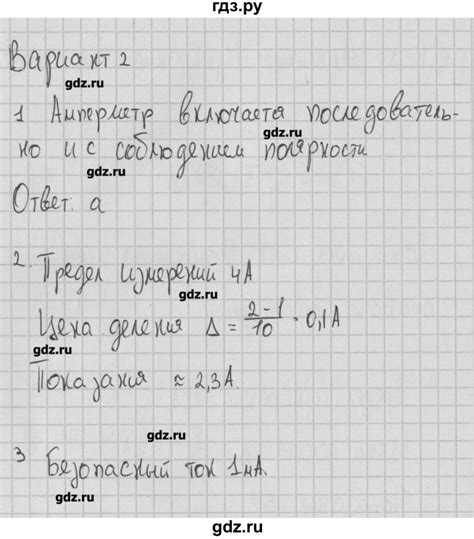 гдз.ру
Вариант 2
gdz.ru
1 Амперметр включается последователь-
gdz.ru
но и с соблюдением полярности
gdz.ru
Ответ: а
gdz.ru
2. Предел измерений 4А
gdz.ru
Цена деления Δ = 2-1/10 · 0,1А
gdz.ru
Показания ≈ 2,3А.
gdz.ru
3 Безопасный ток 1мА.
gdz.ru
gdz.ru